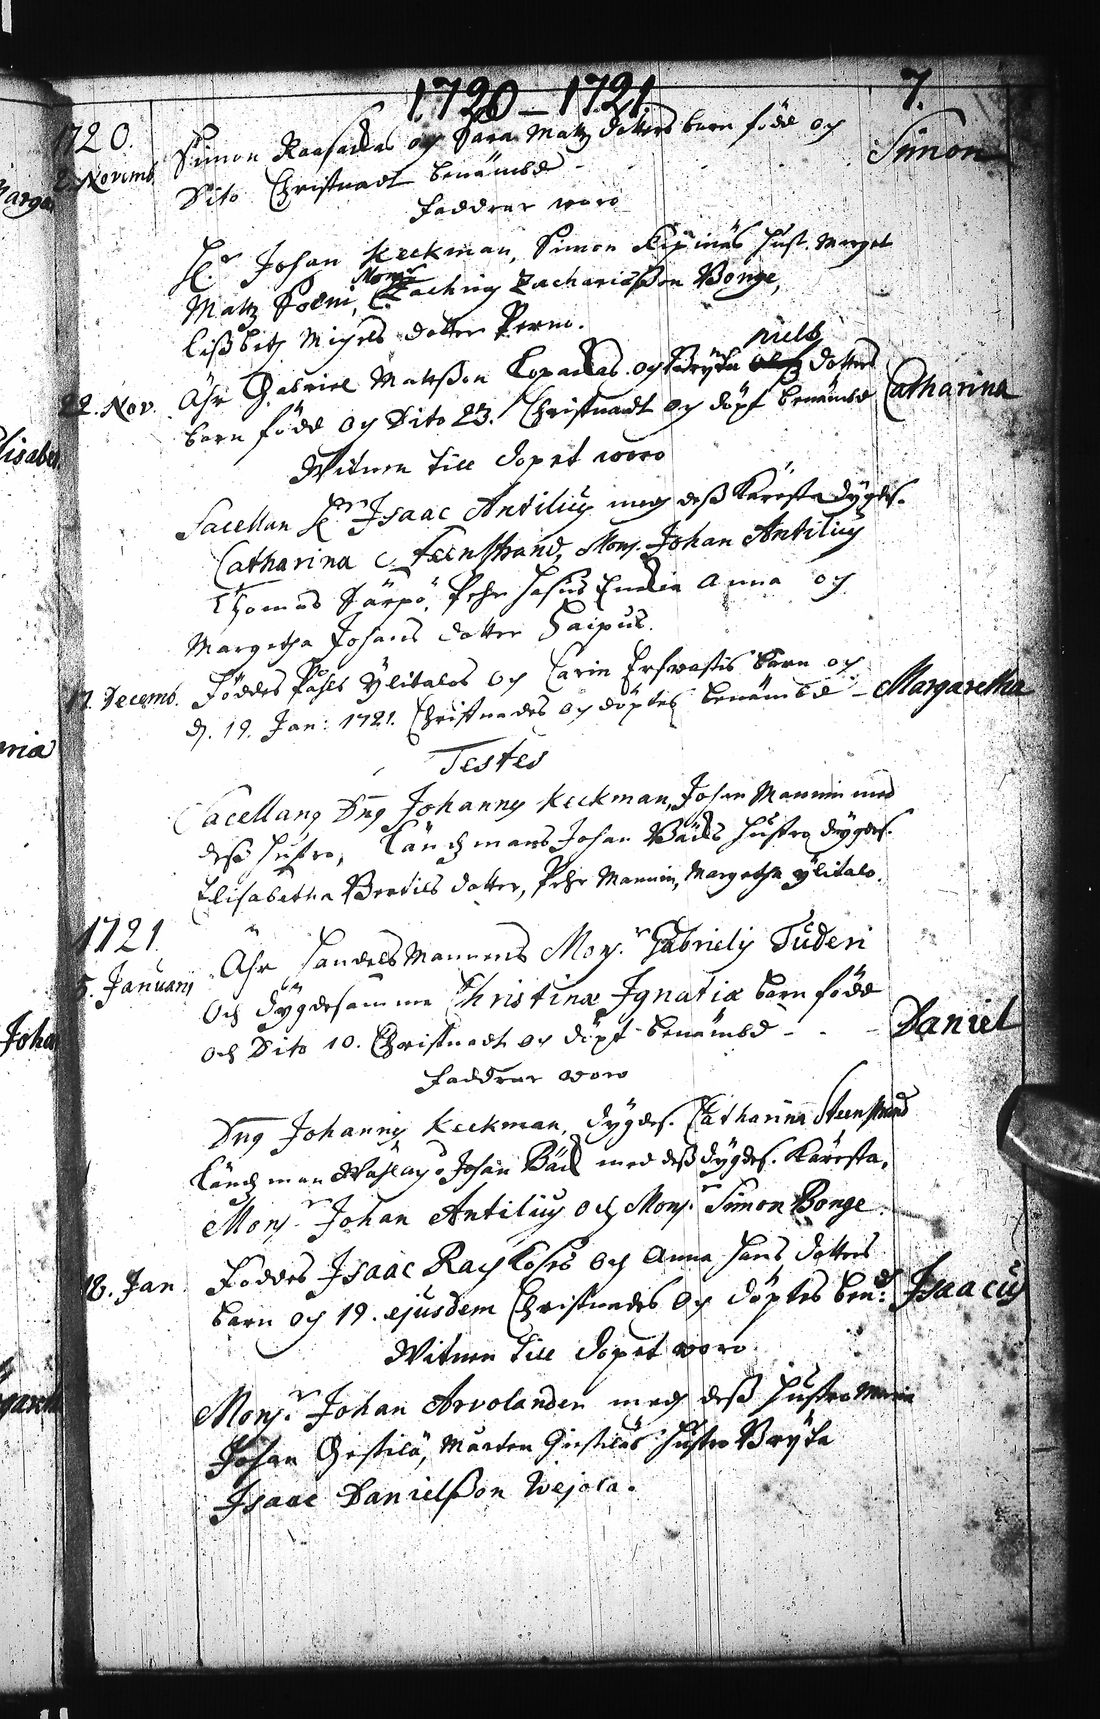 1720 – 1721
7.
1720.
2. Novemb
Simon Raasackas och Sara Matz dotters barn född och
Dito Christnadt benämbd
Simon
Faddrar woro
H.r Johan Keckman, Simon hust. Marget
Matz Poëni, Monsr Zachriq Zachariæßon Bonge,
Lißbeta Michels dotter
22. Nov.
Ähr Gabriel Matzßon Lopackas och Bryta Niels dotters
barn född och Dito 23. Christnadt och döpt benämbd
Catharina
Witnen till dopet woro
Sacellan H.r Isaac Antilius med deß Käresta dygdes.
Catharina Steenstrand, Mons. Johan Antilius
Thomas Pehr Anna och
Margetha Johans dotter Haipus.
17. Decemb.
Föddes Påhls Ylitalos och Carin barn och
d. 19. Jan: 1721. Christnades och döptes benämbd –
Margaretha
Testes
Sacellanq Dnq Johannes Keckman, Johan Mannin med
deß hustro, Länßmans Johan Bäcks hustro dygdes.
Elisabetha Bertils dotter, Pehr Mannin, Margetha Ylitalo.
1721.
5. Januarij
Ähr Handels Mannens Mons.r Gabrielis Tuderi
och dygdesamma Christinæ Ignatiæ barn född
och Dito 10. Christnadt och döpt benämbd –
Daniel
Faddrar woro
Dnq Johannes Keckman, dygdes. Catharina Steenstrand
Länßman Johan Bäck med deß dygdes. Käresta,
Mons.r Johan Antilius och Mons.r Simon Bonge
18. Jan
Föddes Isaac och Anna Hans dotters
barn och 19. ejusdem Christnades och döptes ben:d
Isaacus
Witnen till dopet woro
Mons.r Johan Arvolander med deß hustro Maria
Johan Gestilä, Mårten Giestiläs hustro Bryta
Isaac Danielßon Wejola.